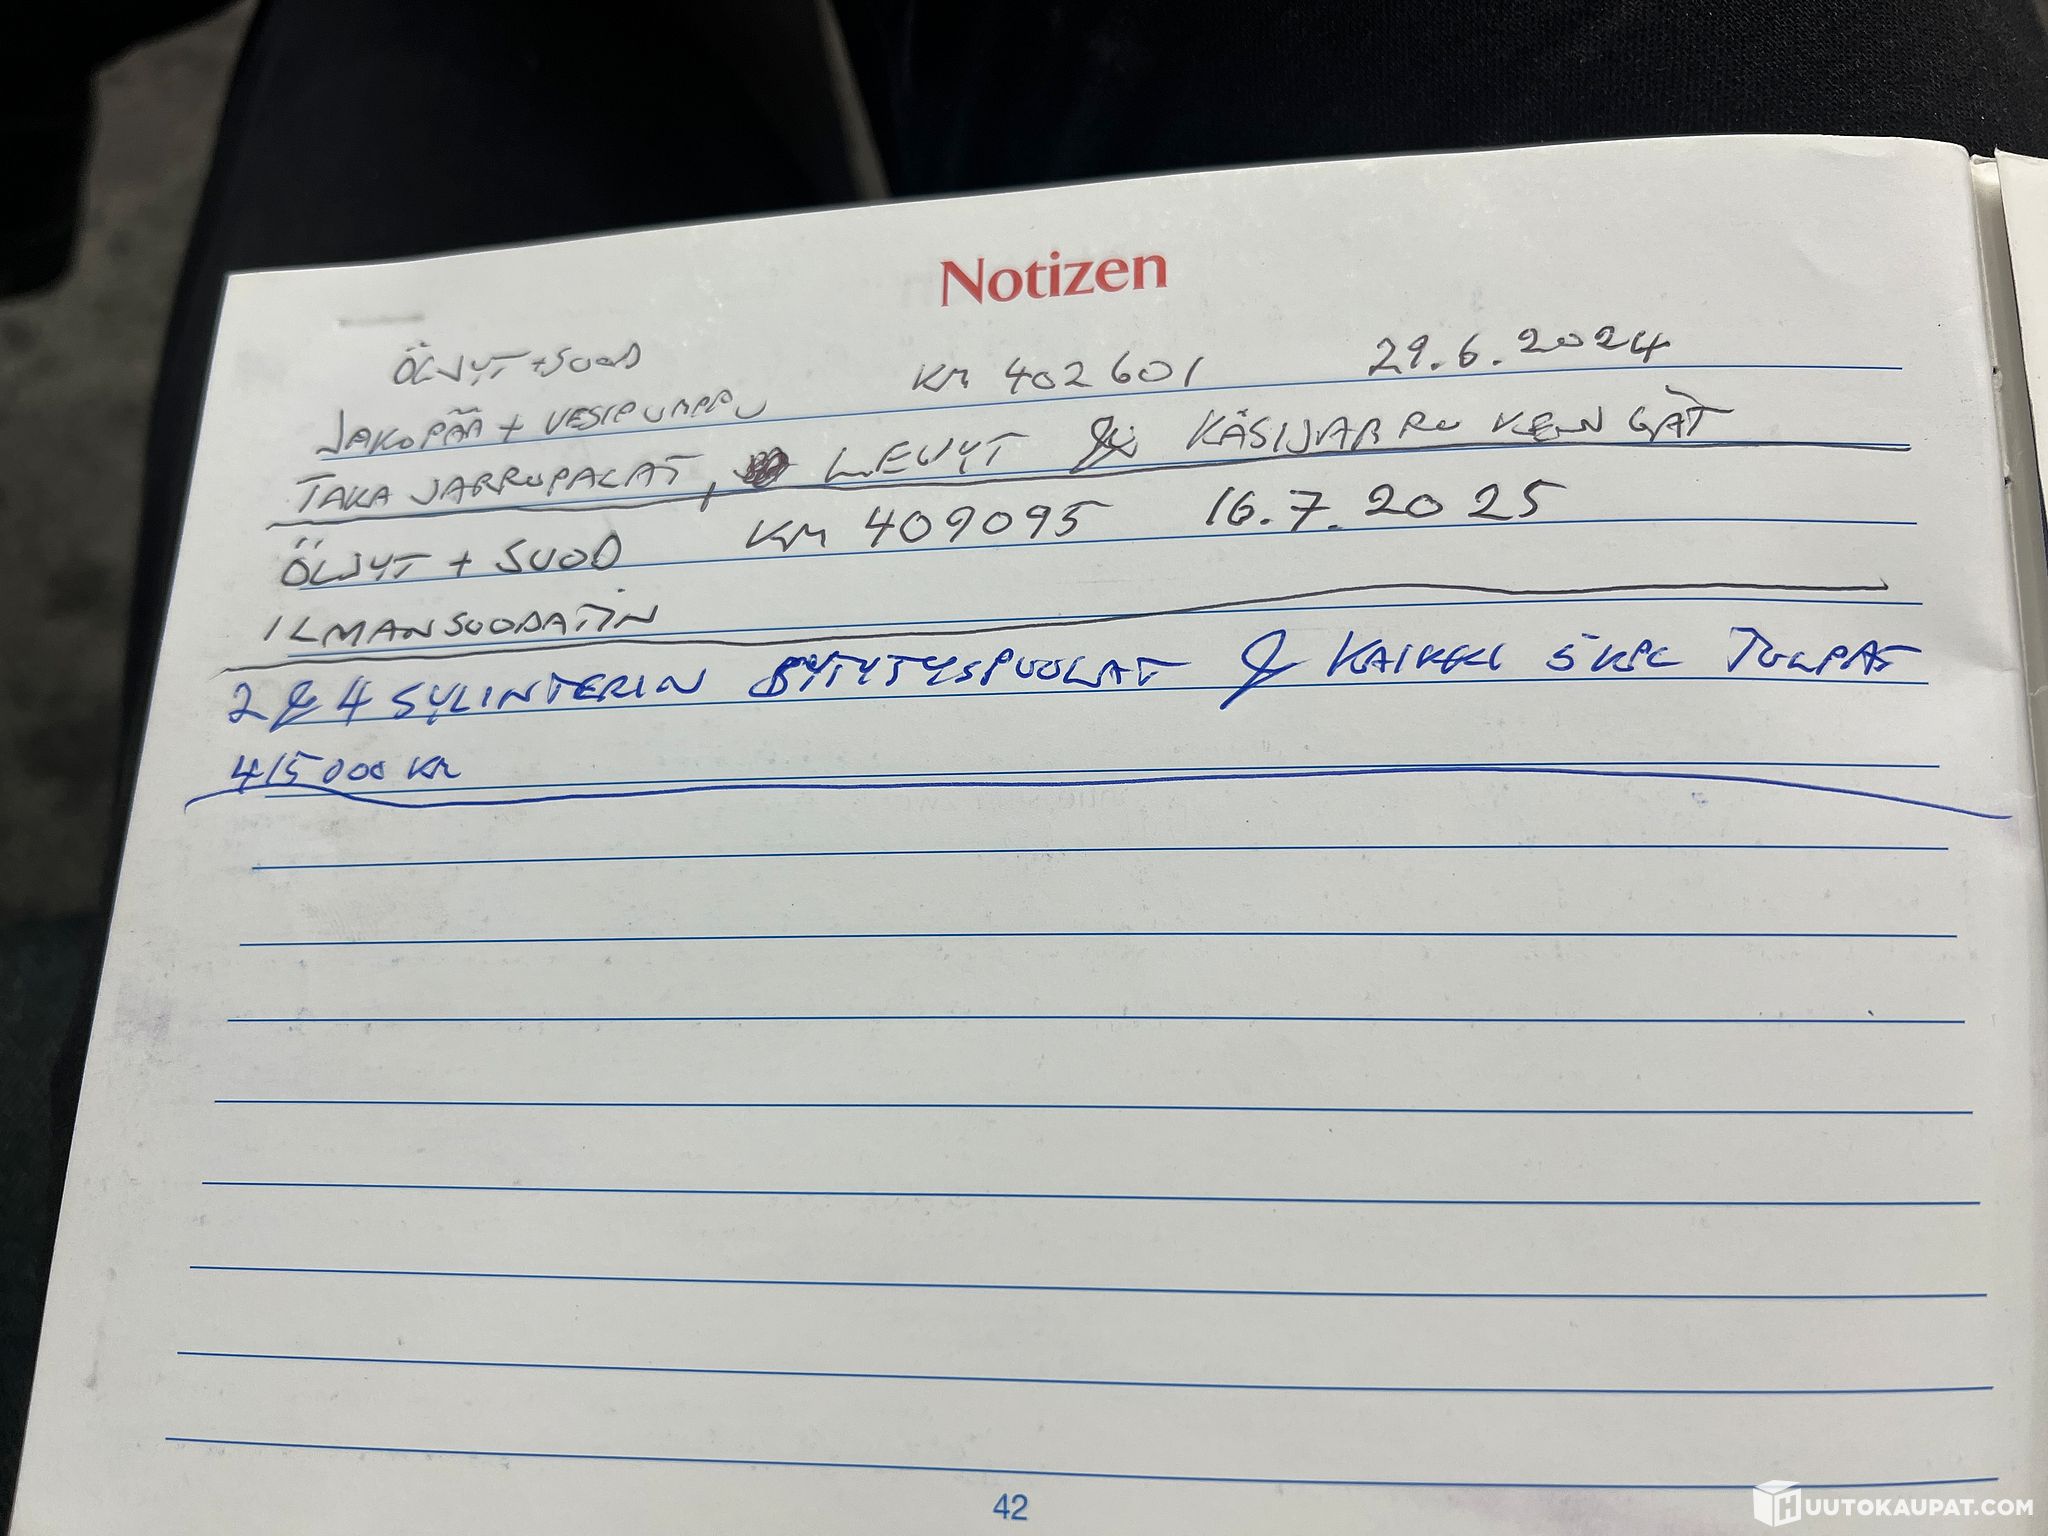 Notizen
ÖLJYT + SUOD KM 402601 29.6.2024
JAKOPÄÄ + VESIPUMPPU
TAKA JARRUPALAT, LEVYT & KÄSIJARRU KENGÄT
ÖLJYT + SUOD KM 409095 16.7.2025
ILMANSUODATIN
2 & 4 SYLINTERIN SYTYTYSPUOLAT & KAIKKI 5 KPL TULPAT
415000 KM
42
HUUTOKAUPAT.COM